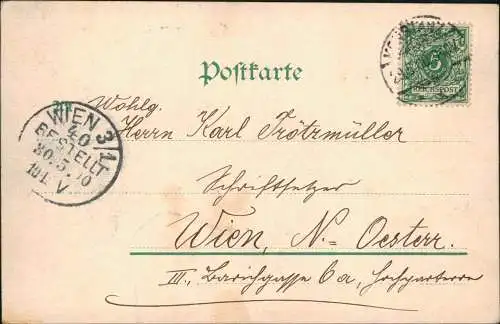 Postkarte
5
REICHSPOST
An
Wohlg.
Herrn Karl Trötzmüller
Schriftsetzer
Wien, N.-Oesterr.
III., Barichgasse 6a, Hochparterre
WIEN 3/1
40
BESTELLT
30.5.00
V